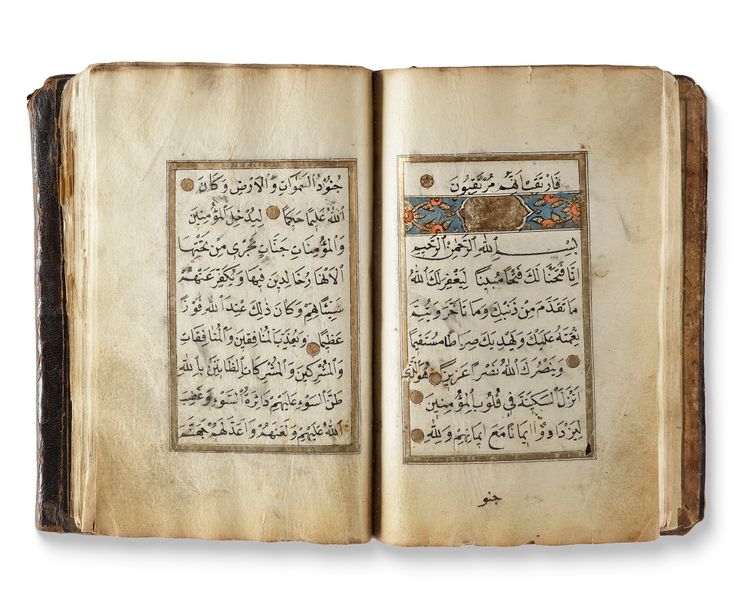 فَارْتَقِبْ اِنَّهُمْ مُرْتَقِبُونَ
بِسْمِ اللّٰهِ الرَّحْمٰنِ الرَّحِيمِ
اِنَّا فَتَحْنَا لَكَ فَتْحًا مُبِينًا لِيَغْفِرَ لَكَ اللّٰهُ
مَا تَقَدَّمَ مِنْ ذَنْبِكَ وَمَا تَاَخَّرَ وَيُتِمَّ
نِعْمَتَهُ عَلَيْكَ وَيَهْدِيَكَ صِرَاطًا مُسْتَقِيمًا
وَيَنْصُرَكَ اللّٰهُ نَصْرًا عَزِيزًا هُوَ الَّذِي
اَنْزَلَ السَّكِينَةَ فِي قُلُوبِ الْمُؤْمِنِينَ
لِيَزْدَادُوا اِيمَانًا مَعَ اِيمَانِهِمْ وَلِلّٰهِ
جنو
جُنُودُ السَّمٰوَاتِ وَالْاَرْضِ وَكَانَ
اللّٰهُ عَلِيمًا حَكِيمًا لِيُدْخِلَ الْمُؤْمِنِينَ
وَالْمُؤْمِنَاتِ جَنَّاتٍ تَجْرِي مِنْ تَحْتِهَا
الْاَنْهَارُ خَالِدِينَ فِيهَا وَيُكَفِّرَ عَنْهُمْ
سَيِّئَاتِهِمْ وَكَانَ ذٰلِكَ عِنْدَ اللّٰهِ فَوْزًا
عَظِيمًا وَيُعَذِّبَ الْمُنَافِقِينَ وَالْمُنَافِقَاتِ
وَالْمُشْرِكِينَ وَالْمُشْرِكَاتِ الظَّانِّينَ بِاللّٰهِ
ظَنَّ السَّوْءِ عَلَيْهِمْ دَائِرَةُ السَّوْءِ وَغَضِبَ
اللّٰهُ عَلَيْهِمْ وَلَعَنَهُمْ وَاَعَدَّ لَهُمْ جَهَنَّمَ